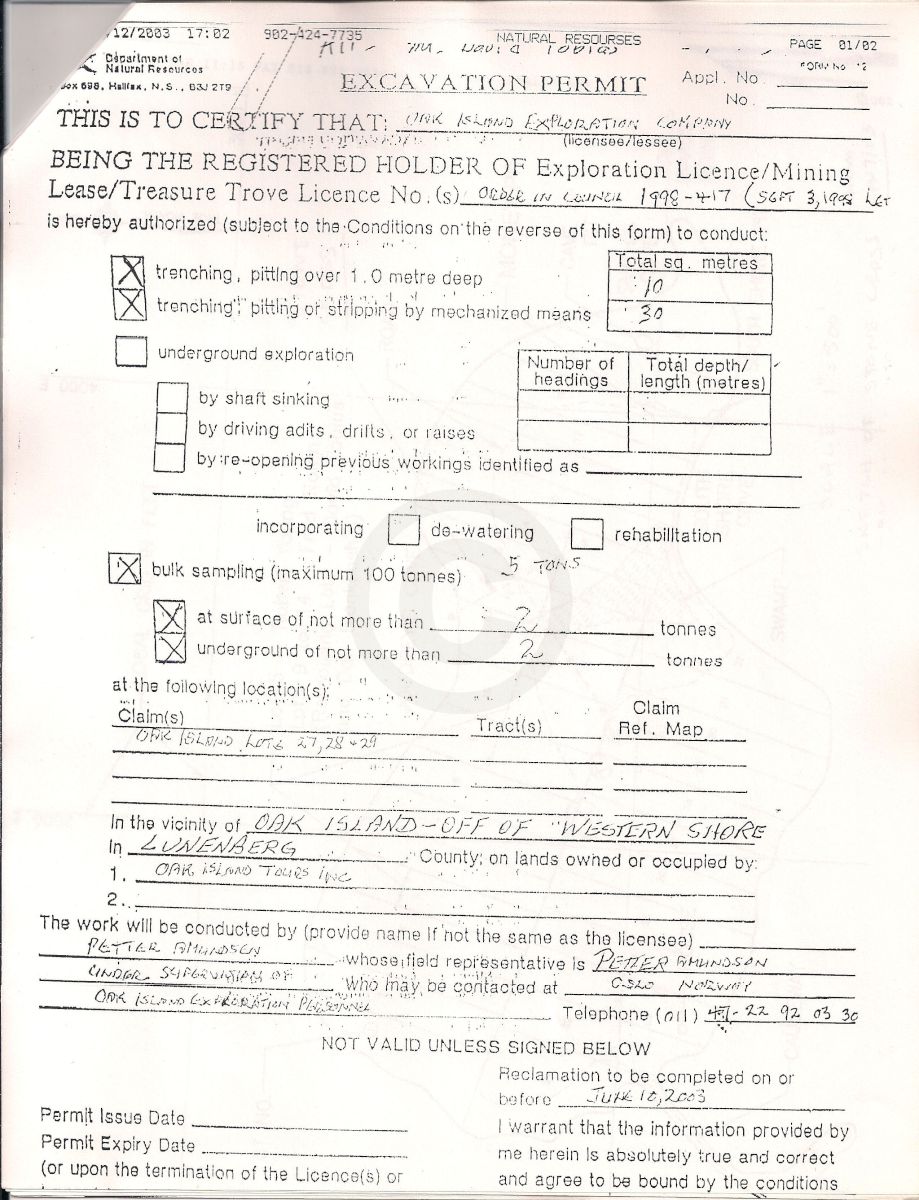 /12/2003 17:02 902-424-7735 NATURAL RESOURSES PAGE 01/02
Department of
Natural Resources
FORM No 12
Box 698, Halifax, N.S., B3J 2T9
EXCAVATION PERMIT
Appl. No.
No.
THIS IS TO CERTIFY THAT: OAK ISLAND EXPLORATION COMPANY
(licensee/lessee)
BEING THE REGISTERED HOLDER OF Exploration Licence/Mining
Lease/Treasure Trove Licence No.(s) ORDER IN COUNCIL 1998-417 (SEPT 3, 1998
is hereby authorized (subject to the Conditions on the reverse of this form) to conduct:
Total sq. metres
trenching, pitting over 1.0 metre deep 10
trenching, pitting or stripping by mechanized means 30
underground exploration
Number of headings Total depth/ length (metres)
by shaft sinking
by driving adits, drifts, or raises
by re-opening previous workings identified as
incorporating de-watering rehabilitation
bulk sampling (maximum 100 tonnes) 5 TONS
at surface of not more than 2 tonnes
underground of not more than 2 tonnes
at the following location(s):
Claim(s) Tract(s) Claim Ref. Map
OAK ISLAND LOTS 27, 28 + 29
In the vicinity of OAK ISLAND - OFF OF "WESTERN SHORE
In LUNENBERG County; on lands owned or occupied by:
1. OAK ISLAND TOURS INC
2.
The work will be conducted by (provide name if not the same as the licensee)
PETTER AMUNDSEN whose field representative is PETTER AMUNDSON
UNDER SUPERVISION OF who may be contacted at OSLO NORWAY
OAK ISLAND EXPLORATION PERSONNEL Telephone (011) 47-22 92 03 30
NOT VALID UNLESS SIGNED BELOW
Reclamation to be completed on or
before JUNE 10, 2003
Permit Issue Date I warrant that the information provided by
Permit Expiry Date me herein is absolutely true and correct
(or upon the termination of the Licence(s) or and agree to be bound by the conditions